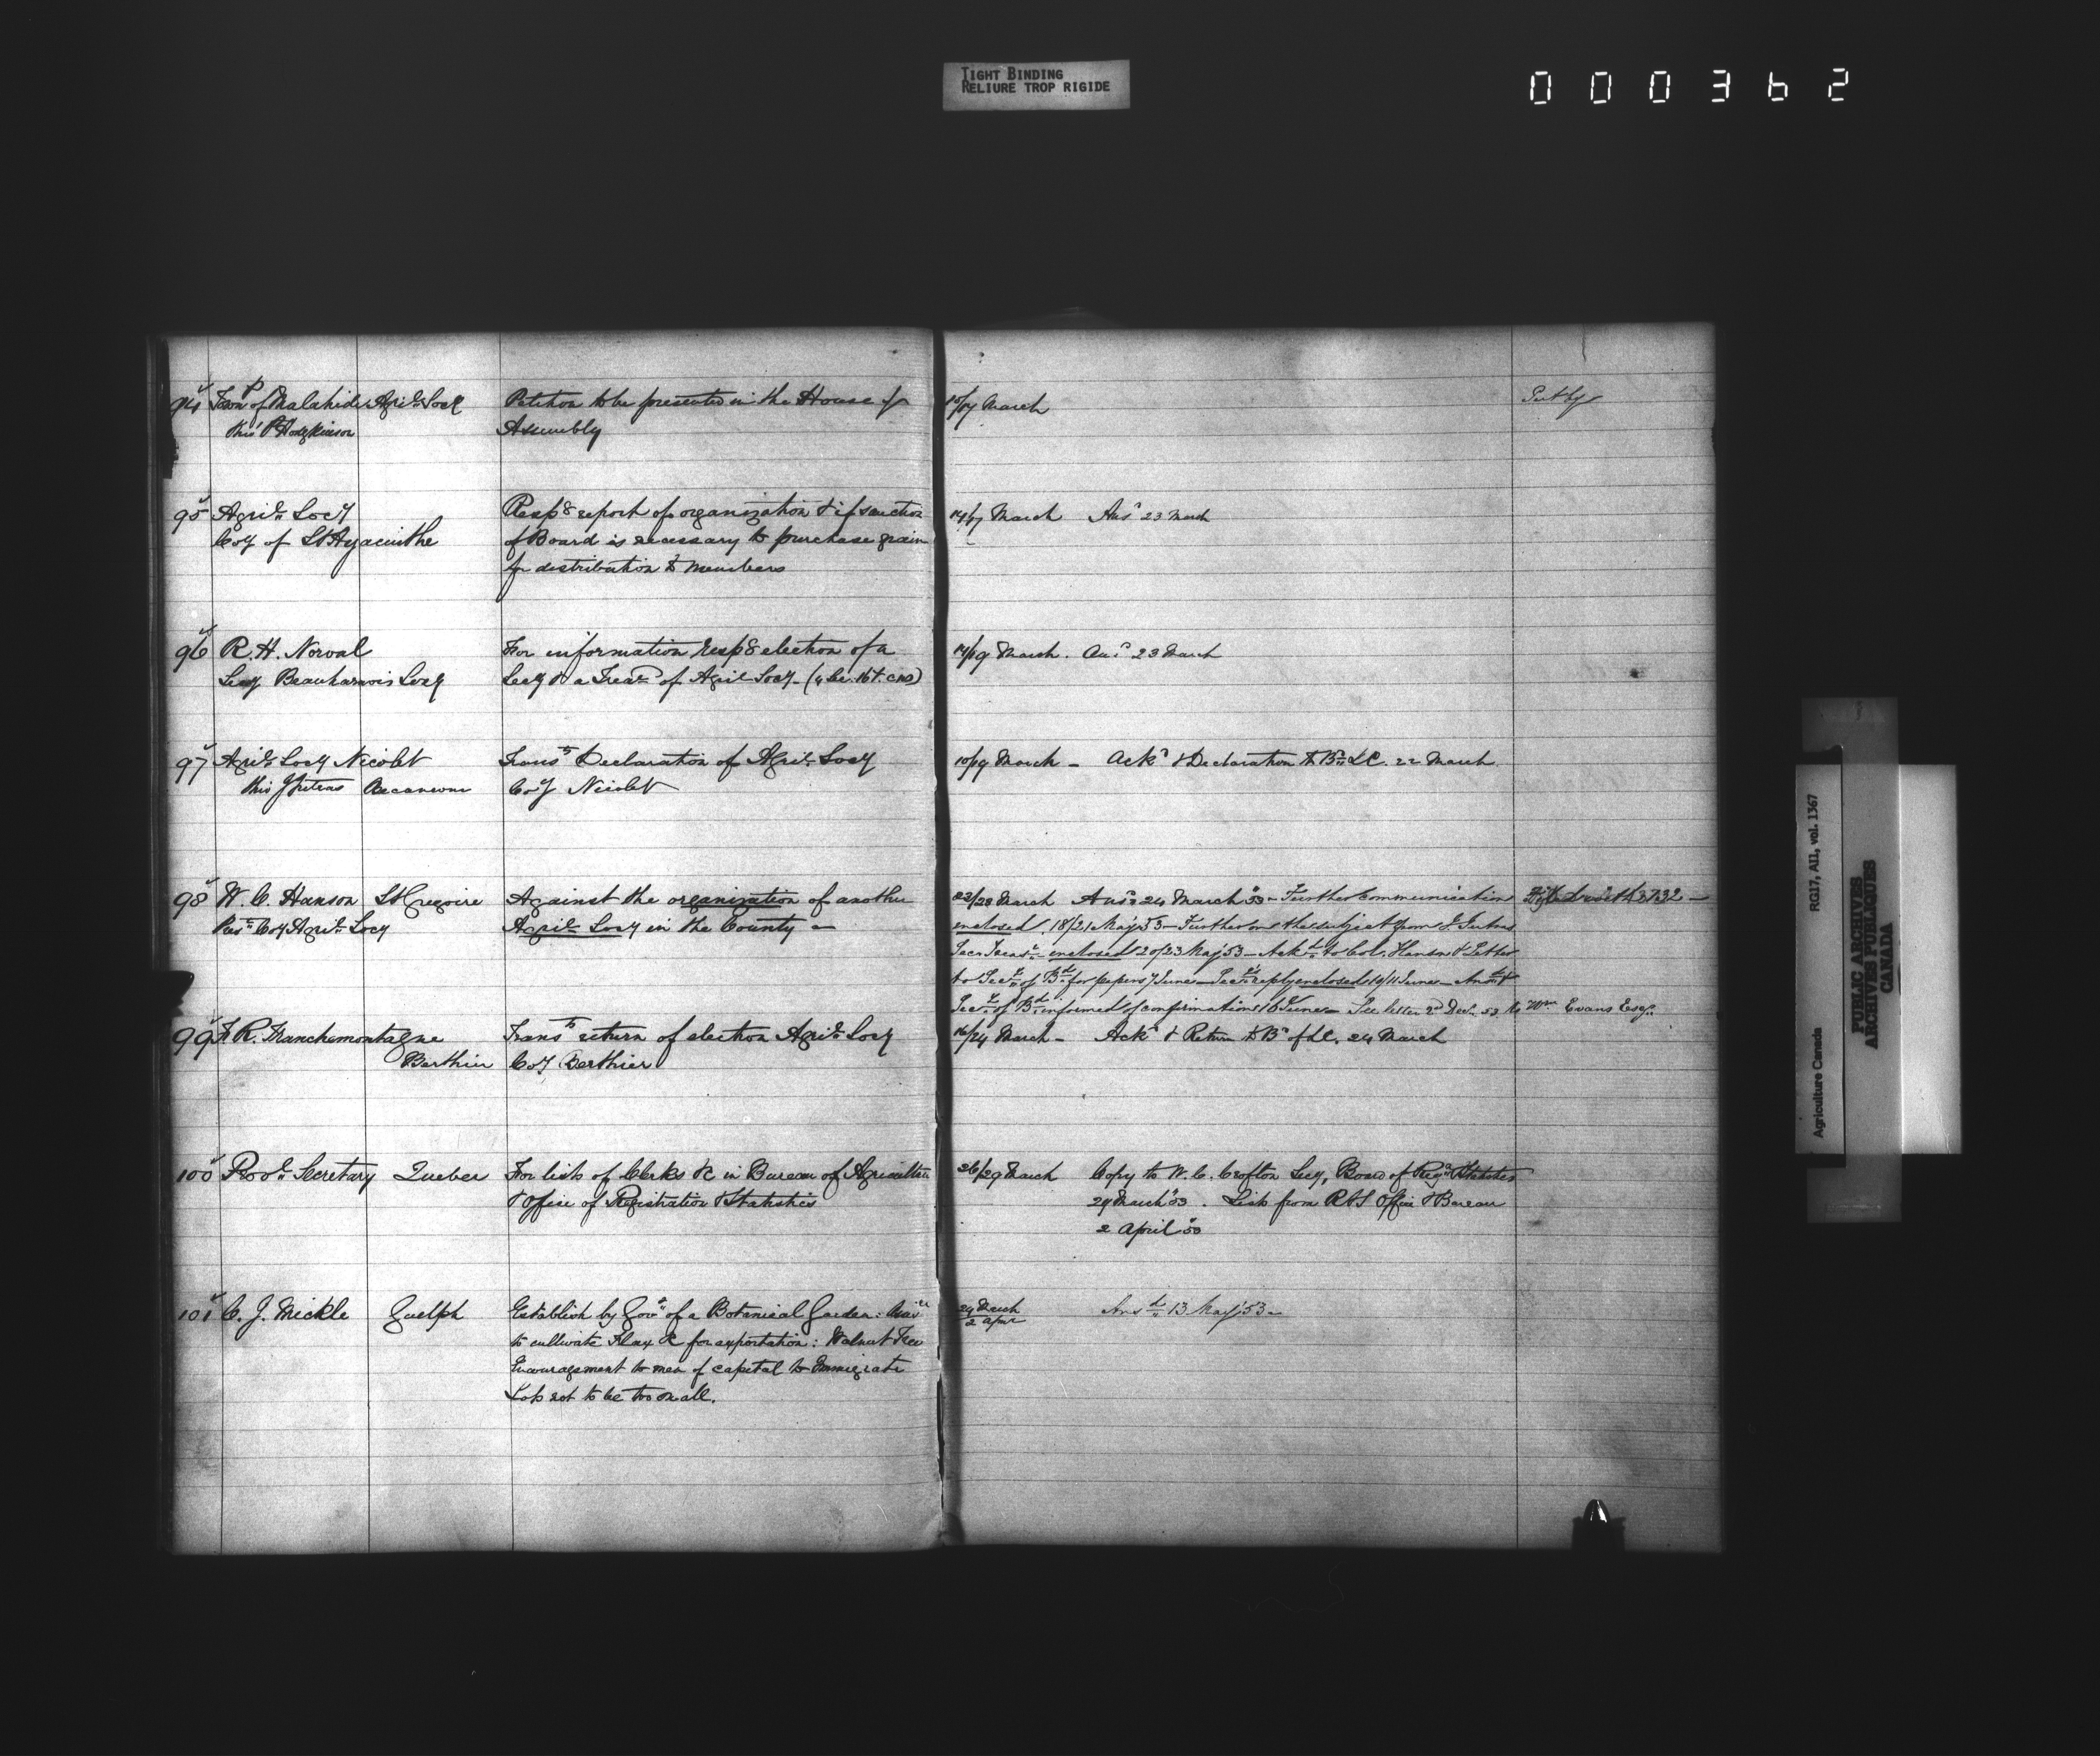 TIGHT BINDING
RELIURE TROP RIGIDE
000362
94 Town of Malahide Agril. Socy Petition to be presented in the House of 15/17 March Put by
thro' P Hodgkinson Assembly
95 Agril. Socy Respg report of organization & if sanction 14/17 March Ansd 23 March
Coy of St Hyacinthe of Board is necessary to purchase grain
for distribution to members
96 R. H. Norval For information respg election of a 14/19 March. Ansd 23 March
Secy Beauharnois Socy Secy & a Treasr of Agril Socy
97 Agril. Socy Nicolet Transg Declaration of Agril. Socy 10/19 March – Ackd & Declaration to Bd L C. 22 March
Becancour Coy Nicolet
98 W. C. Hanson St Gregoire Against the organization of another 22/23 March Ansd 24 March '53 – Further Communication
Prest Coy Agril. Socy Agril. Socy in the County – enclosed. 18/21 May '53 – Further on the subject from
enclosed 20/23 May '53 – Ackd to Col. Hanson & Letter
to Secy of Bd for papers 7 June – Secy's reply enclosed 10/11 June –
Secy of Bd informed of confirmation 16 June – See letter 2d Dec. 53 to Wm Evans Esqr.
99 F R. Franchemontagne Transg return of election Agril. Socy 16/24 March – Ackd & Return to Bd of LC. 24 March
Berthier Coy Berthier
100 Provl. Secretary Quebec For lists of Clerks &c in Bureau of Agriculture 26/29 March Copy to W. C. Crofton Secy, Board of Regn & Statistics
& Office of Registration & Statistics 29 March '53. List from R & S Office & Bureau
2 April '53
101 C. J. Mickle Guelph Establish by Govt of a Botanical Garden: 24 March Ansd 13 May '53 –
to cultivate Flax &c for exportation: Walnut Trees 2 Apr
Encouragement to men of capital to Immigrate
Lots not to be too small.
Agriculture Canada RG17, AII, vol. 1367
PUBLIC ARCHIVES
ARCHIVES PUBLIQUES
CANADA